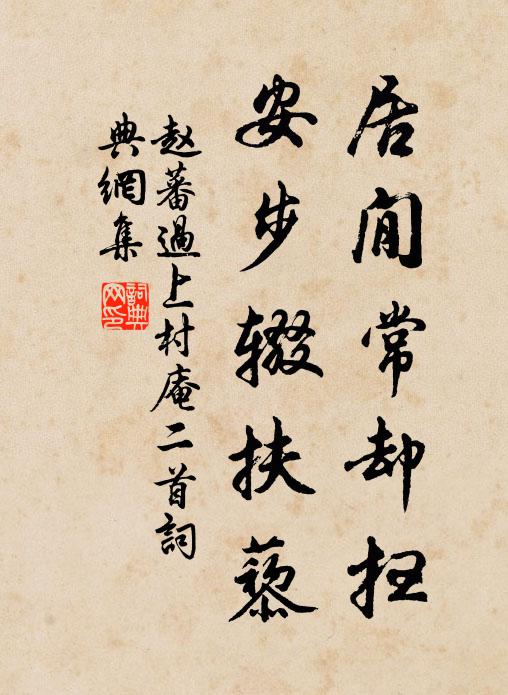 居閒常却扫
安步辍扶藜
赵蕃過上村庵二首詞
典網集
詞典
网印